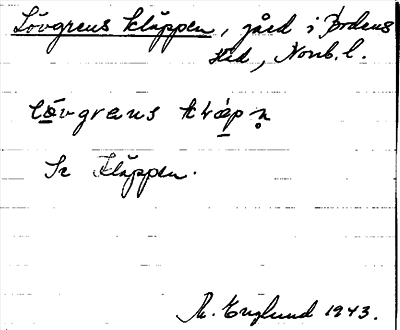 Lövgrens kläppen, gård i Bodens
skd, Norrb. l.
lövgrens klɛ́pn̥
Se Kläppen.
M. Englund 1943.